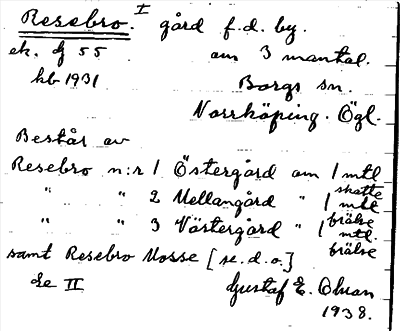 Resebro. I gård f.d. by.
ek. bj 55 om 3 mantal.
hb 1931 Borgs sn.
Norrköping. Ögl.
Består av
Resebro n:r 1 Östergård om 1 mtl skatte
" " 2 Mellangård " 1 mtl frälse
" " 3 Västergård " 1 mtl. frälse
samt Resebro Mosse [se. d.o.]
Se II Gustaf E. Olson
1938.